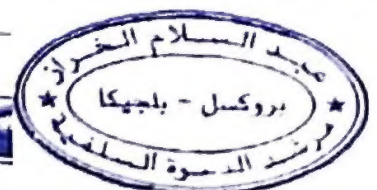 عبد السلام الخراز
بروكسل - بلجيكا
مرشد الدعوة السلفية